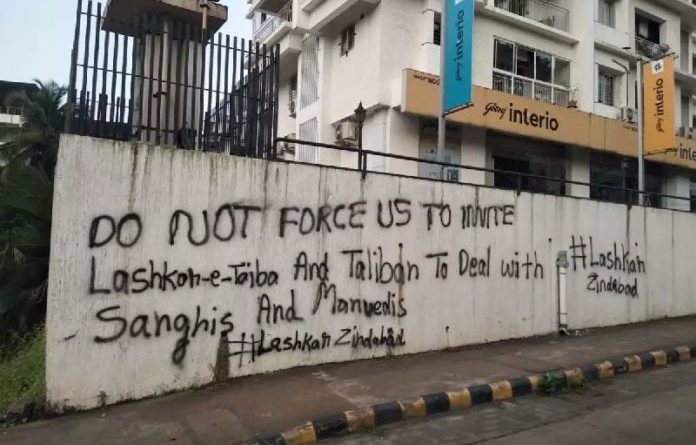 DO NOT FORCE US TO INVITE
Lashkar-e-Taiba And Taliban To Deal with
Sanghis And Manvedis
#Lashkar Zindabad
#Lashkar
Zindabad
Godrej interio
interio
interio